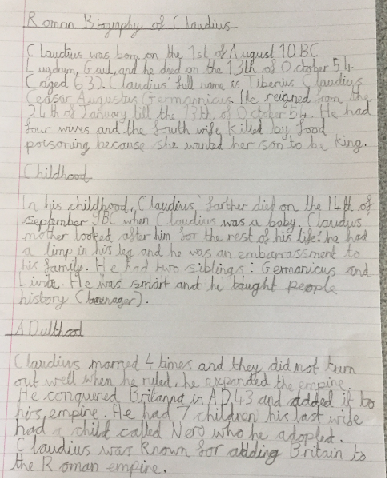 Roman Biography of Claudius
Claudius was born on the 1st of August 10BC
Lugdnum, Gaul, and he died on the 13th of October 54
(aged 63). Claudius full name is Tiberius Claudius
Ceasar Augustus Germanicus. He reigned from the
24th of January till the 13th of October 54. He had
four wives and the fourth wife killed by food
poisoning because she wanted her son to be king.
Childhood
In his childhood, Claudius, farther died on the 14th of
september 9BC when Claudius was a baby. Claudius
mother looked after him for the rest of his life. he had
a limp in his leg and he was an embarrassment to
his family. He had two siblings: Germanicus and
Livilla. He was smart and he taught people
history (teenager).
Adulthood
Claudius married 4 times and they did not turn
out well when he ruled, he expanded the empire.
He conquered Britannia in AD43 and added it to
his empire. He had 7 children his last wife
had a child called Nero who he adopted.
Claudius was known for adding Britain to
the Roman empire.